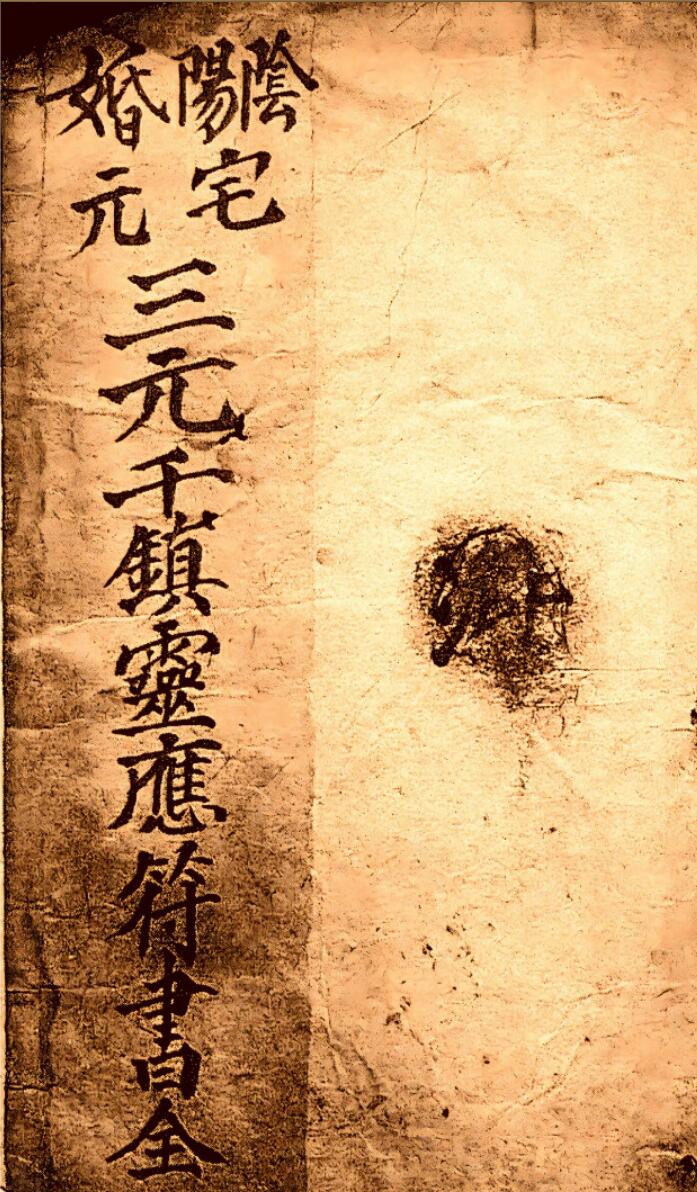 陰陽宅
婚元
三元千鎮靈應符書全